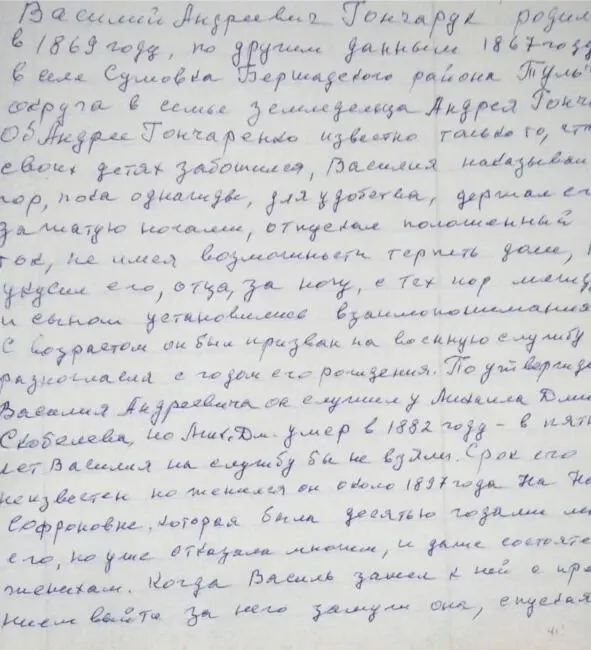 Василий Андреевич Гончарук родил
в 1869 году, по другим данным 1867 году
в селе Сумовка Бершадского района Туль
округа в семье земледельца Андрея Гонч
Об Андрее Гончаренко известно только то, чт
своих детях заботился, Василия наказывал
пор, пока однажды, для удобства, держал ег
зажатую ногами, отпускал положенный
ток, не имея возможности терпеть даже,
укусил его, отца, за ногу, с тех пор между
и сыном установилось взаимопонимание
С возрастом он был призван на военную службу
разногласия с годом его рождения. По утвержде
Василия Андреевича он служил у Михаила Дми
Скобелева, но Мих. Дм. умер в 1882 году - в пятн
лет Василия на службу бы не взяли. Срок его
неизвестен но женился он около 1897 года На На
Софроновне, которая была десятью годами мл
его, но уже отказала многим, и даже состояте
женихам. Когда Василь зашел к ней с пре
нием выйти за него замуж она, спуская